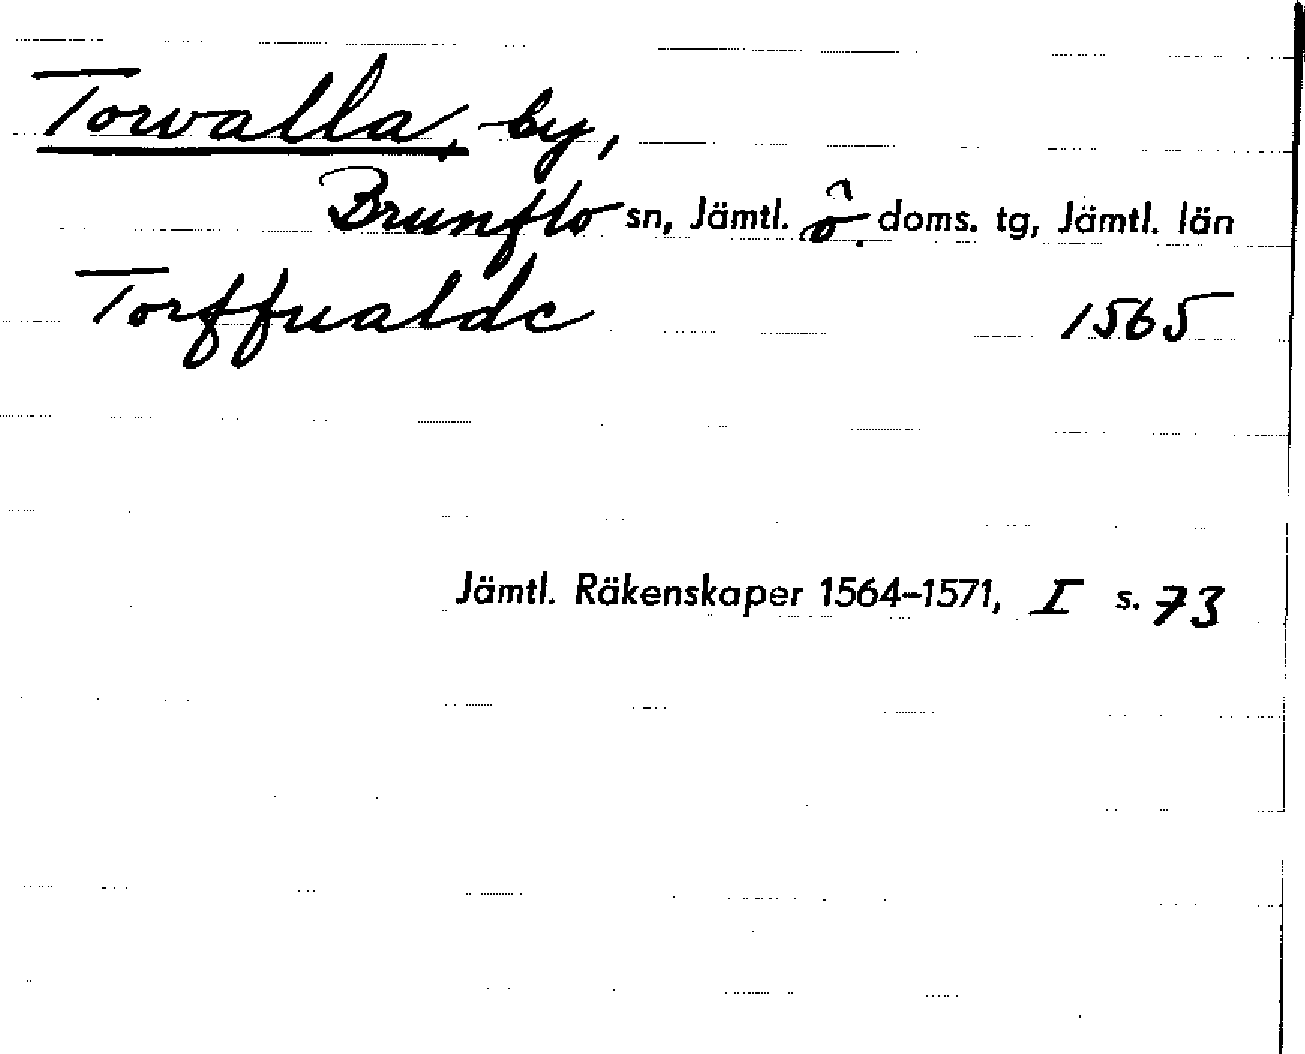 Torvalla, by,
Brunflo sn, Jämtl. ö. doms. tg, Jämtl. län
Torffualde 1565
Jämtl. Räkenskaper 1564–1571, I s. 73